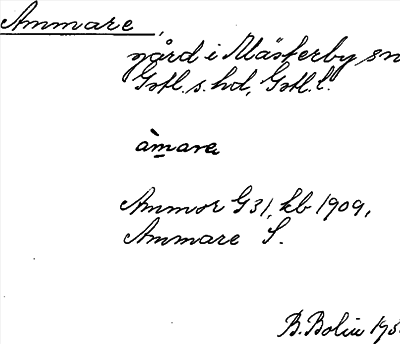 Ammare,
gård i Mästerby sn
Gotl. s. hd, Gotl. l.
àmarɐ
Ammor G 31, kb 1909,
Ammare S.
B. Bolin